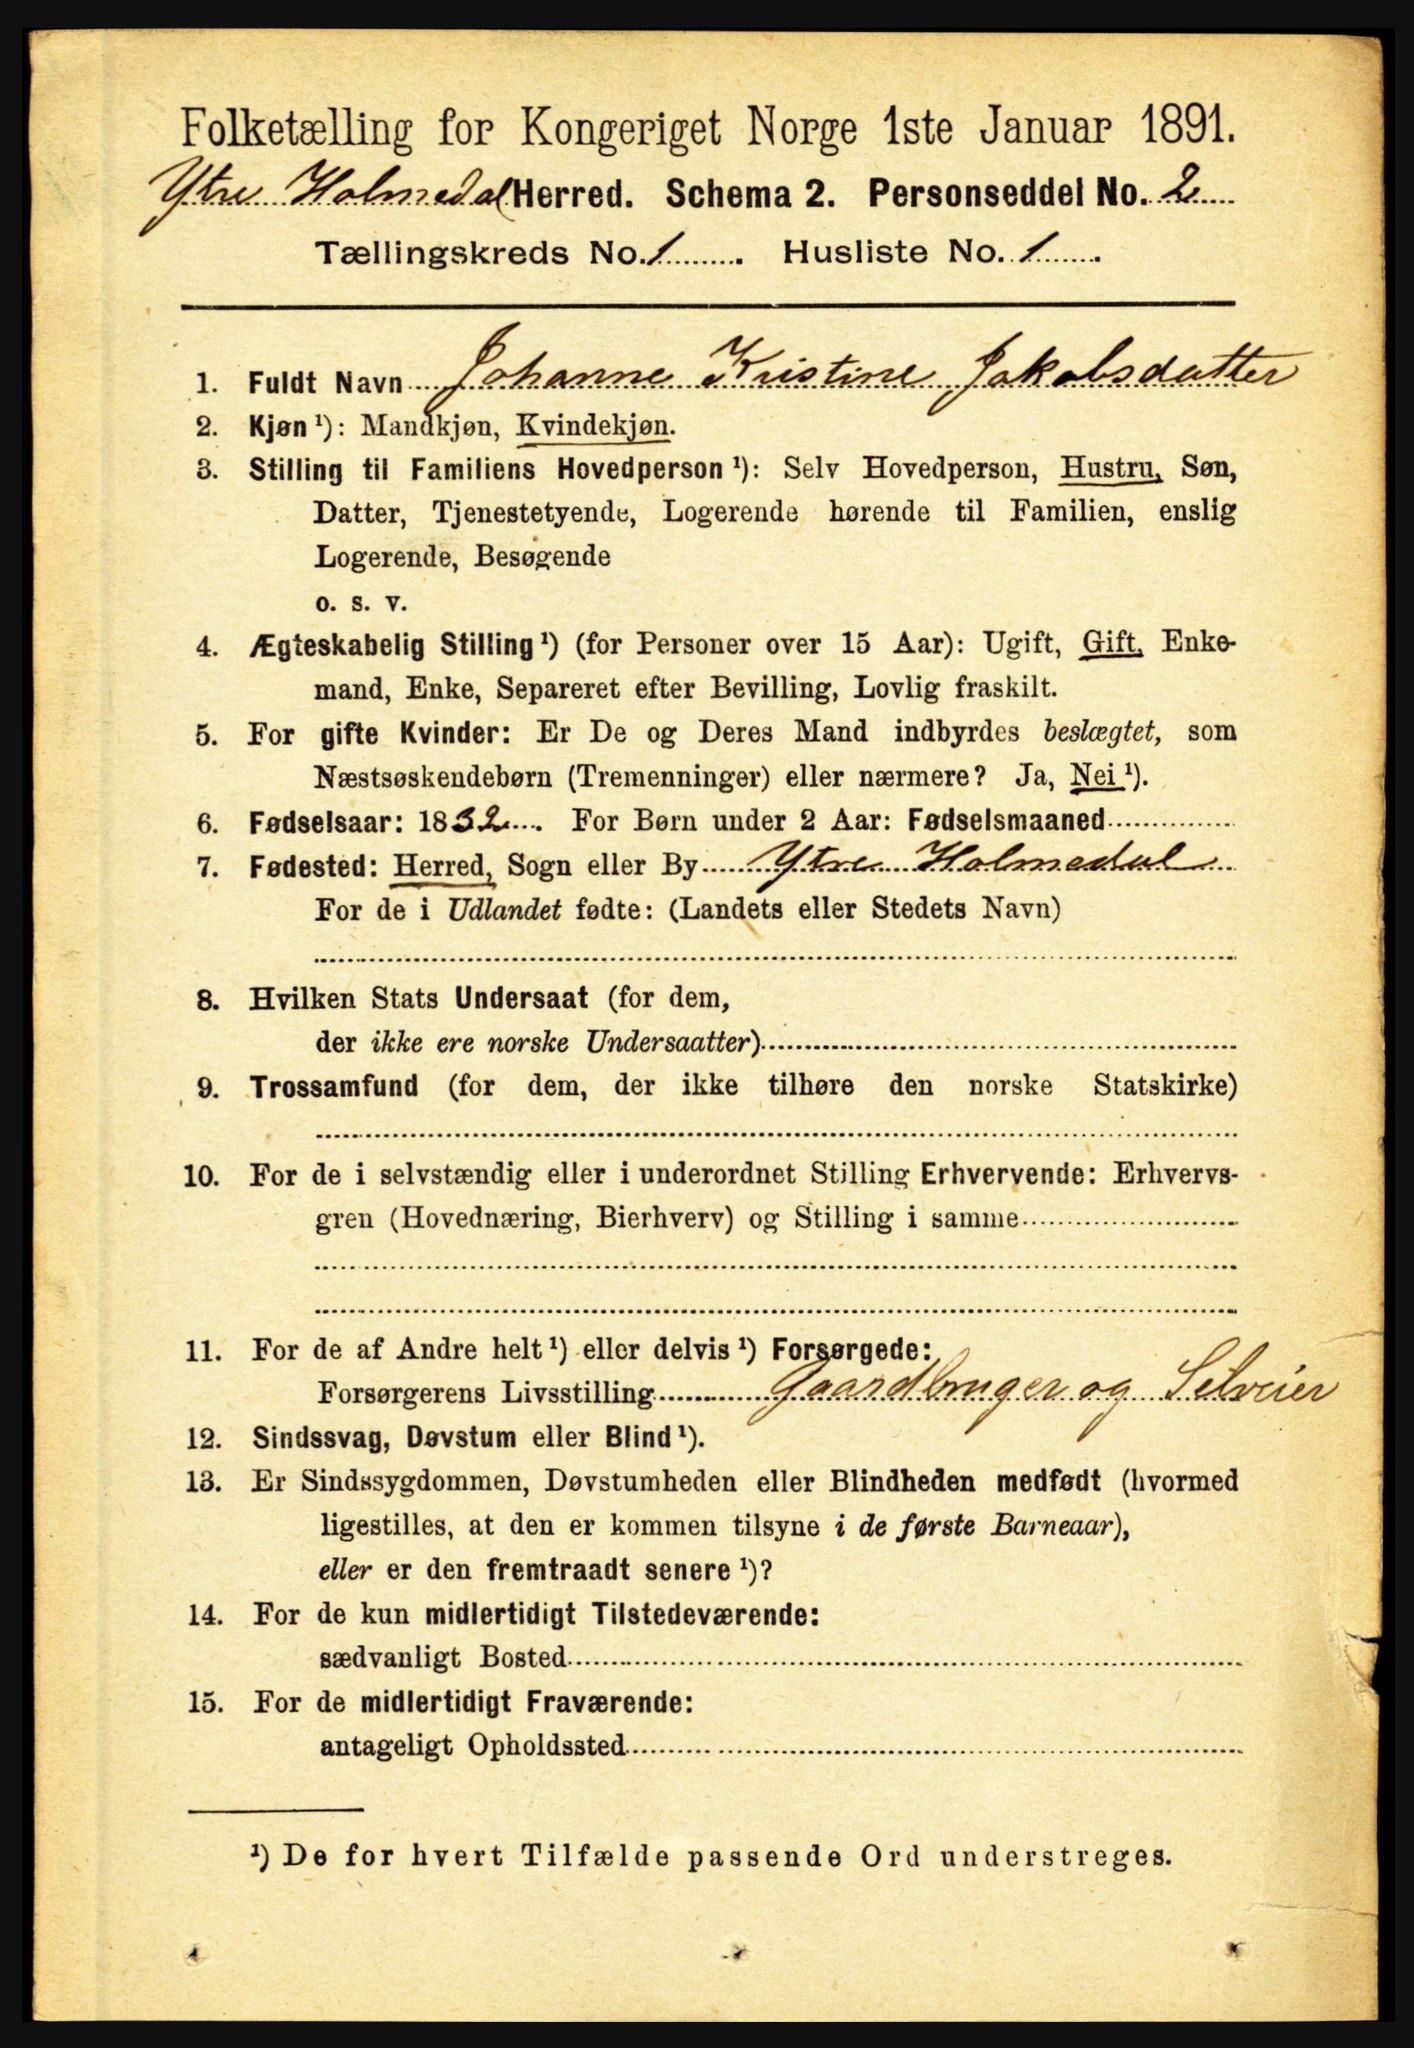 Folketælling for Kongeriget Norge 1ste Januar 1891.
Ytre Holmedal Herred. Schema 2. Personseddel No. 2
Tællingskreds No. 1. Husliste No. 1.
1. Fuldt Navn Johanne Kristine Jakobsdatter
2. Kjøn ¹): Mandkjøn, Kvindekjøn.
3. Stilling til Familiens Hovedperson ¹): Selv Hovedperson, Hustru, Søn,
Datter, Tjenestetyende, Logerende hørende til Familien, enslig
Logerende, Besøgende
o. s. v.
4. Ægteskabelig Stilling ¹) (for Personer over 15 Aar): Ugift, Gift, Enke-
mand, Enke, Separeret efter Bevilling, Lovlig fraskilt.
5. For gifte Kvinder: Er De og Deres Mand indbyrdes beslægtet, som
Næstsøskendebørn (Tremenninger) eller nærmere? Ja, Nei ¹).
6. Fødselsaar: 1832. For Børn under 2 Aar: Fødselsmaaned
7. Fødested: Herred, Sogn eller By Ytre Holmedal
For de i Udlandet fødte: (Landets eller Stedets Navn)
8. Hvilken Stats Undersaat (for dem,
der ikke ere norske Undersaatter)
9. Trossamfund (for dem, der ikke tilhøre den norske Statskirke)
10. For de i selvstændig eller i underordnet Stilling Erhvervende: Erhvervs-
gren (Hovednæring, Bierhverv) og Stilling i samme
11. For de af Andre helt ¹) eller delvis ¹) Forsørgede:
Forsørgerens Livsstilling Gaardbruger og Selveier
12. Sindssvag, Døvstum eller Blind ¹).
13. Er Sindssygdommen, Døvstumheden eller Blindheden medfødt (hvormed
ligestilles, at den er kommen tilsyne i de første Barneaar),
eller er den fremtraadt senere ¹)?
14. For de kun midlertidigt Tilstedeværende:
sædvanligt Bosted
15. For de midlertidigt Fraværende:
antageligt Opholdssted
¹) De for hvert Tilfælde passende Ord understreges.